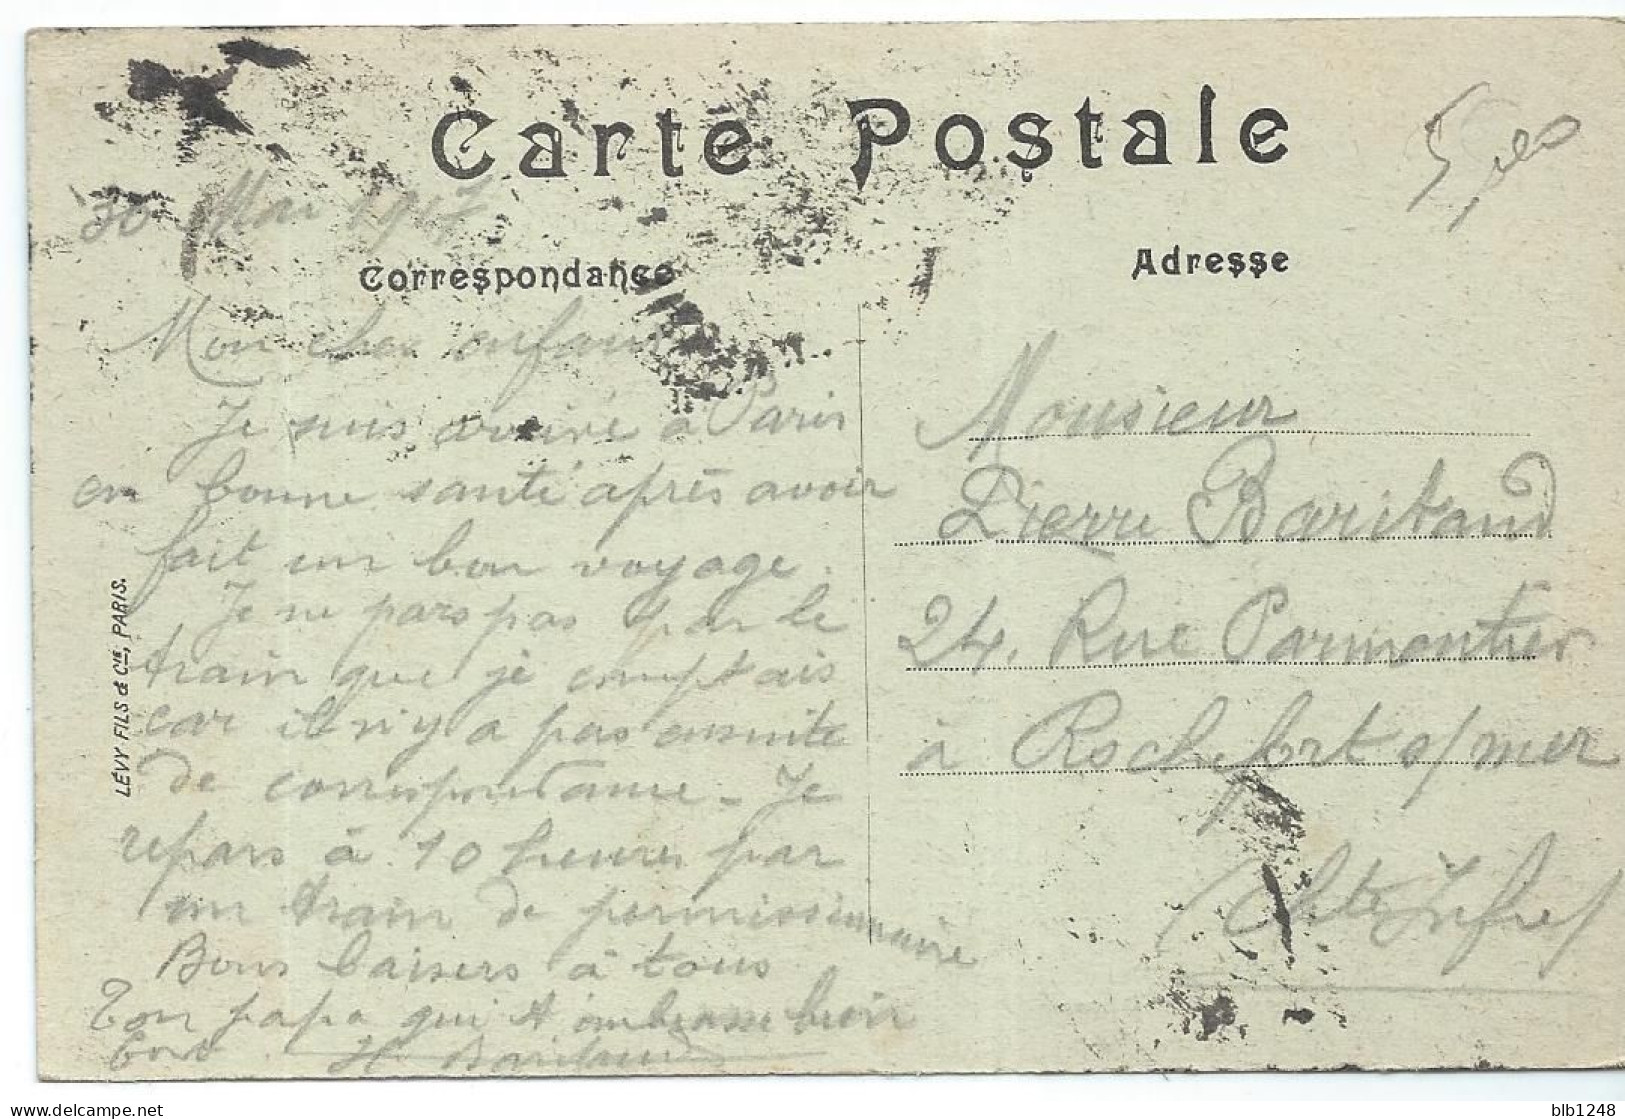 Carte Postale
5,00
30 Mai 1917
Correspondance
Adresse
Mon cher enfant
Je suis arrivé à Paris
en bonne santé après avoir
fait un bon voyage.
Je ne pars pas par le
train que je comptais
car il n'y a pas ensuite
de correspondance - Je
repars à 10 heures par
un train de permissionnaire
Bons baisers à tous
Ton papa qui t'embrasse bien
fort H Baritaud
Monsieur
Pierre Baritaud
24, Rue Parmentier
à Rochefort s/mer
(Chte Infre)
LÉVY FILS & Cie, PARIS.
delcampe.net
blb1248